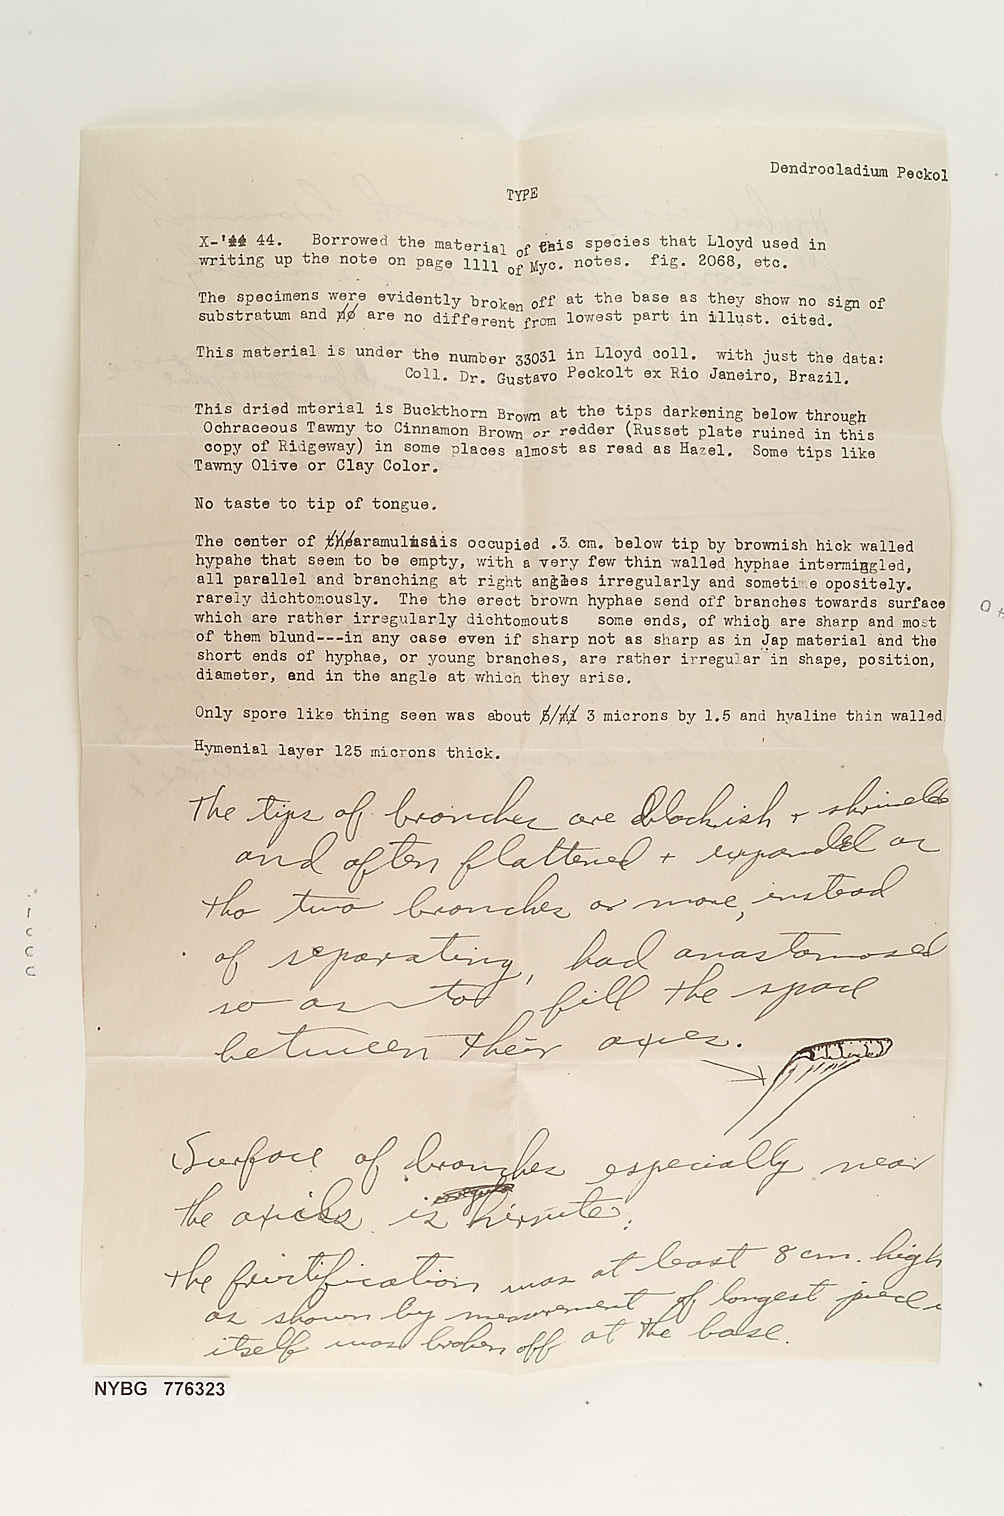 Dendrocladium Peckol
TYPE
X-'44 44. Borrowed the material of this species that Lloyd used in
writing up the note on page 1111 of Myc. notes. fig. 2068, etc.
The specimens were evidently broken off at the base as they show no sign of
substratum and are no different from lowest part in illust. cited.
This material is under the number 33031 in Lloyd coll. with just the data:
Coll. Dr. Gustavo Peckolt ex Rio Janeiro, Brazil.
This dried mterial is Buckthorn Brown at the tips darkening below through
Ochraceous Tawny to Cinnamon Brown or redder (Russet plate ruined in this
copy of Ridgeway) in some places almost as read as Hazel. Some tips like
Tawny Olive or Clay Color.
No taste to tip of tongue.
The center of aramulusis is occupied .3 cm. below tip by brownish hick walled
hypahe that seem to be empty, with a very few thin walled hyphae intermingled,
all parallel and branching at right angles irregularly and sometime opositely.
rarely dichtomously. The the erect brown hyphae send off branches towards surface
which are rather irregularly dichtomouts some ends, of which are sharp and most
of them blund---in any case even if sharp not as sharp as in Jap material and the
short ends of hyphae, or young branches, are rather irregular in shape, position,
diameter, and in the angle at which they arise.
Only spore like thing seen was about 3 microns by 1.5 and hyaline thin walled
Hymenial layer 125 microns thick.
The tips of branches are blackish + shriveled
and often flattened + expanded as
tho two branches or more, instead
of separating, had anastomosed
so as to fill the space
between their axes.
Surface of branches especially near
the axils is hirsute.
The fructification was at least 8 cm. high
as shown by measurement of longest piece
itself was broken off at the base.
NYBG 776323